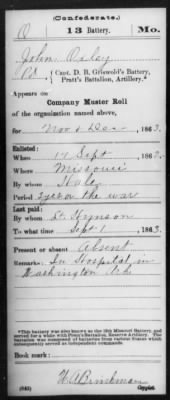 (Confederate.)
O 13 Battery. Mo.
John Oxley
Pvt, Capt. D. B. Griswold's Battery,
Pratt's Battalion, Artillery.
Appears on
Company Muster Roll
of the organization named above,
for Nov & Dec, 1863.
Enlisted:
When 17 Sept, 1862.
Where Missouri
By whom Hale
Period 3 yrs or the war
Last paid:
By whom Lt. Hynson
To what time Sept 1, 1863.
Present or absent Absent
Remarks: In Hospital in
Washington Ark
*This battery was also known as the 13th Missouri Battery, and
served for a while with Pratt's Battalion, Reserve Artillery. The
battalion was composed of batteries from various States which
subsequently served as independent commands.
Book mark:
H A Brinkman
(642) Copyist.